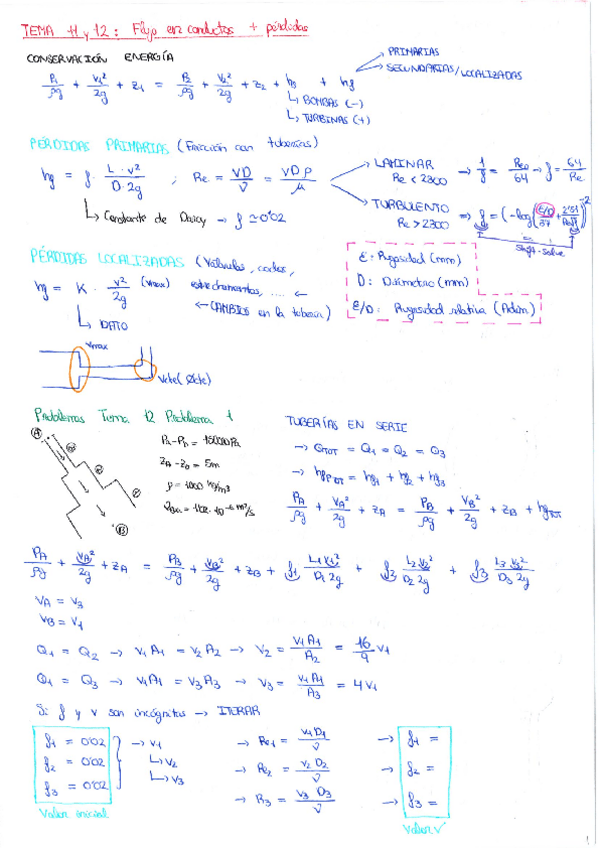 TEMA 11 y 12: Flujo en conductos + pérdidas
CONSERVACIÓN ENERGÍA
P₁/ρg + V₁²/2g + z₁ = P₂/ρg + V₂²/2g + z₂ + h_B + h_f
→ PRIMARIAS
→ SECUNDARIAS/LOCALIZADAS
↳ BOMBAS (-)
↳ TURBINAS (+)
PÉRDIDAS PRIMARIAS (Fricción con tuberías)
hf = f · L·v²/D·2g ; Re = VD/ν = VDρ/μ
→ LAMINAR Re < 2300 → 1/f = Re/64 → f = 64/Re
→ TURBULENTO Re > 2300
Shift-Solve
↳ Constante de Darcy → f ≃ 0'02
PÉRDIDAS LOCALIZADAS (Válvulas, codos,
estrechamientos, .... ←
← CAMBIOS en la tubería)
hf = K · v²/2g (vmax)
↳ DATO
ε: Rugosidad (mm)
D: Diámetro (mm)
ε/D: Rugosidad relativa (Adim)
Vmax
Vcte (Øcte)
Problemas Tema 12 Problema 1
A
B
PA - PB = 150000 Pa
zA - zB = 5m
ρ = 1000 kg/m³
TUBERÍAS EN SERIE
→ QTOT = Q1 = Q2 = Q3
→ hfTOT = hf1 + hf2 + hf3
PA/ρg + VA²/2g + zA = PB/ρg + VB²/2g + zB + hfTOT
PA/ρg + VA²/2g + zA = PB/ρg + VB²/2g + zB + f1 L1V1²/D1 2g + f2 L2V2²/D2 2g + f3 L3V3²/D3 2g
VA = V3
VB = V1
Q1 = Q2 → V1A1 = V2A2 → V2 = V1A1/A2 = 16/9 V1
Q1 = Q3 → V1A1 = V3A3 → V3 = V1A1/A3 = 4V1
Si f y v son incógnitas → ITERAR
f1 = 0'02
f2 = 0'02
f3 = 0'02
Valor inicial
→ V1
↳ V2
↳ V3
→ Re1 = V1D1/ν
→ Re2 = V2D2/ν
→ R3 = V3D3/ν
→ f1 =
→ f2 =
→ f3 =
Valor √